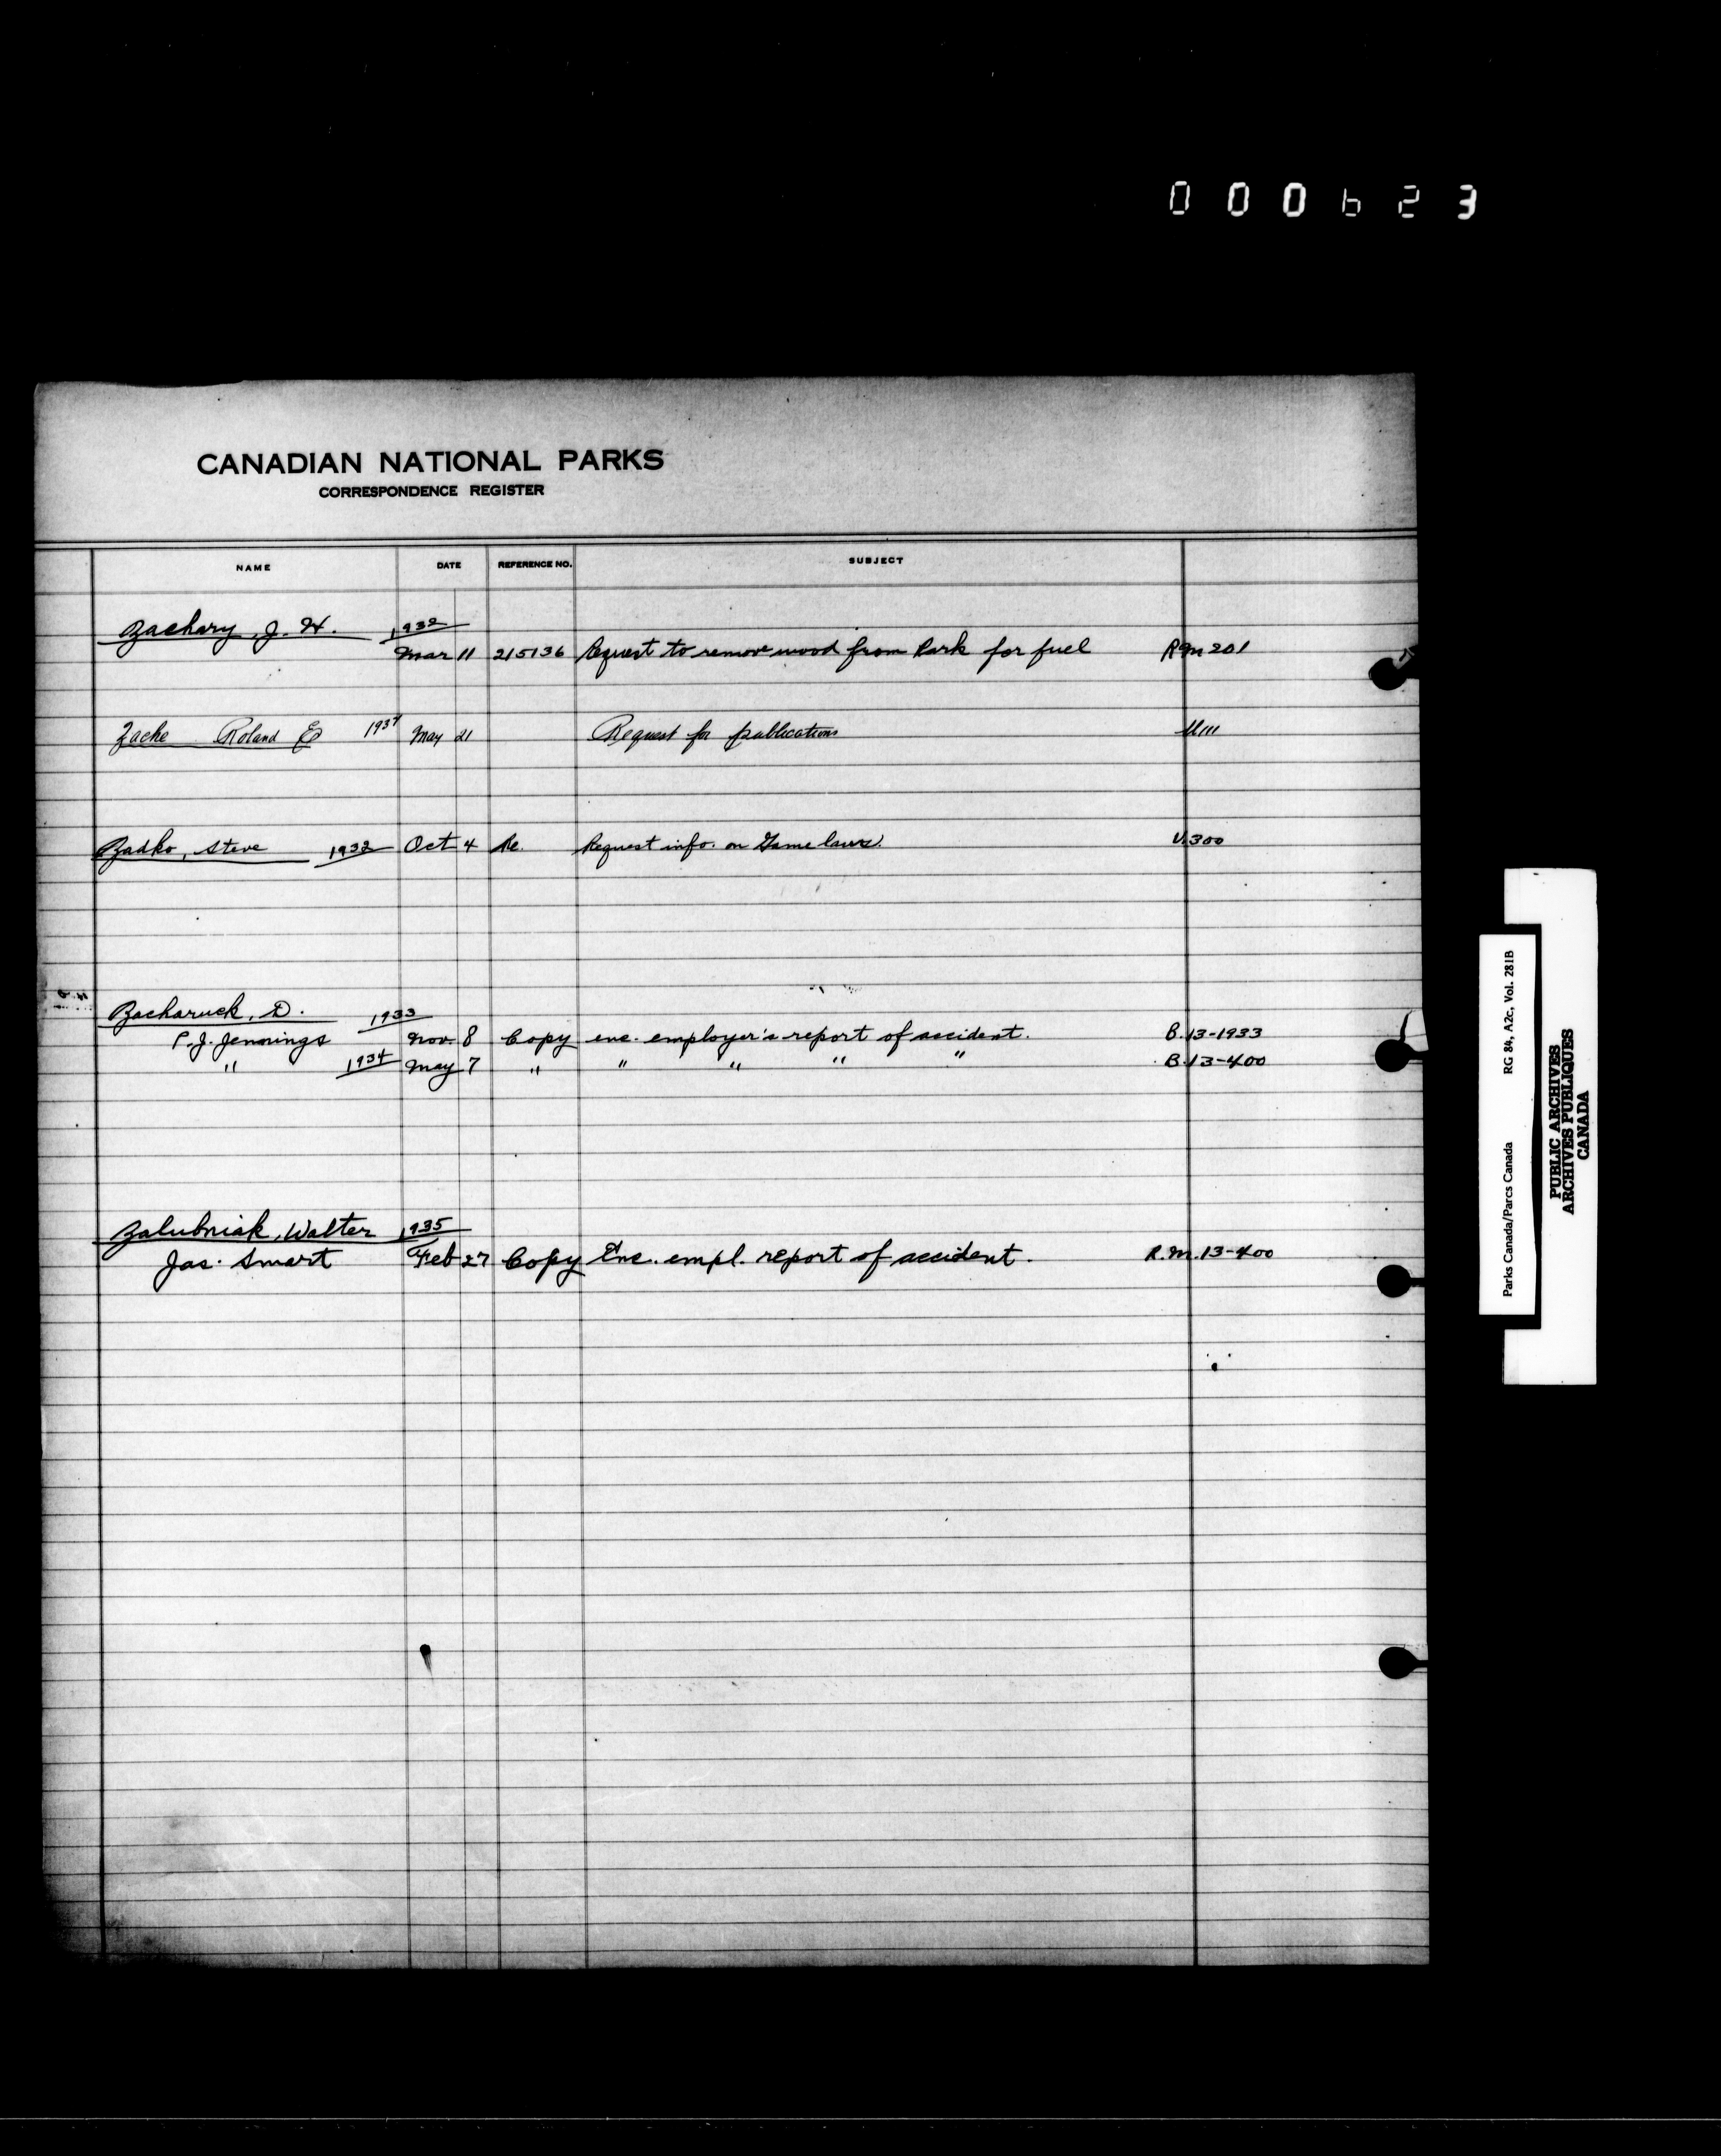 000623
CANADIAN NATIONAL PARKS
CORRESPONDENCE REGISTER
NAME DATE REFERENCE NO. SUBJECT
Zachary, J. H. 1932
Mar 11 215136 Request to remove wood from Park for fuel RM 201
Zache Roland E 1934 May 21 Request for publications U111
Zadko, Steve 1932 Oct 4 Re. Request info. on Game laws. U.300
Zacharuck, D. 1933
P.J. Jennings Nov. 8 Copy enc. employer's report of accident. B.13-1933
" 1934 May 7 " " " " " B.13-400
Zalubniak, Walter 1935
Jas. Smart Feb 27 Copy Enc. empl. report of accident. R.M.13-400
Parks Canada/Parcs Canada RG 84, A2c, Vol. 281B
PUBLIC ARCHIVES
ARCHIVES PUBLIQUES
CANADA